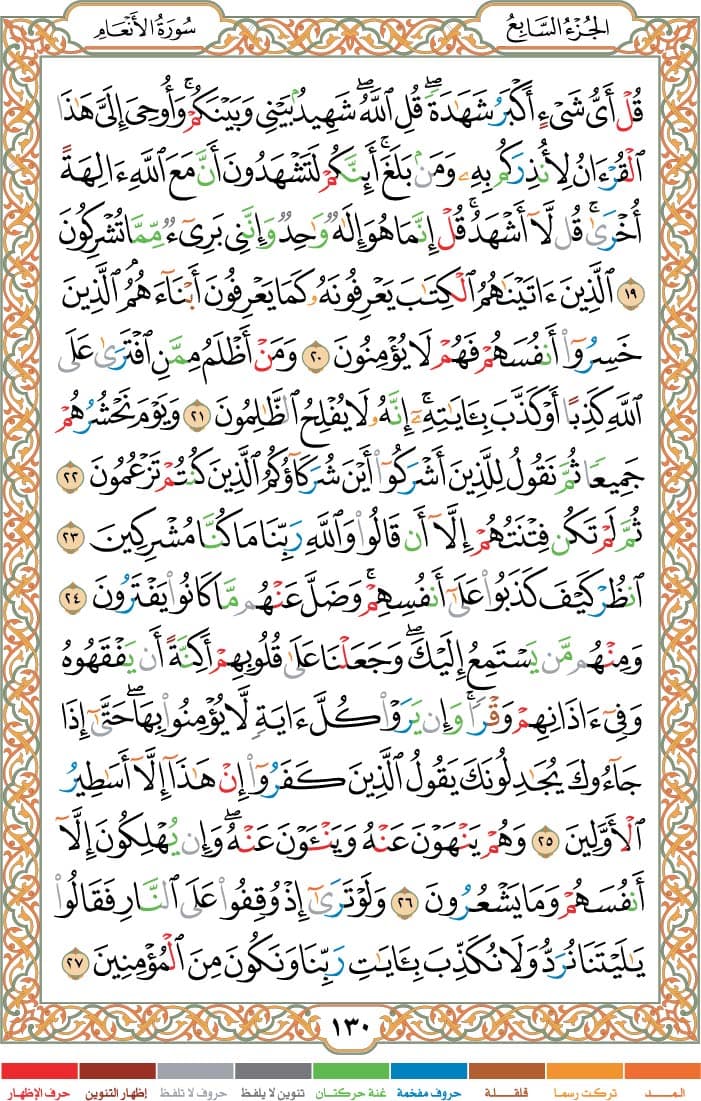 الجُزْءُ السَّابِعُ
سُورَةُ الأَنْعَامِ
قُلْ أَىُّ شَىْءٍ أَكْبَرُ شَهَٰدَةً ۖ قُلِ ٱللَّهُ ۖ شَهِيدٌۢ بَيْنِى وَبَيْنَكُمْ ۚ وَأُوحِىَ إِلَىَّ هَٰذَا
ٱلْقُرْءَانُ لِأُنذِرَكُم بِهِۦ وَمَنۢ بَلَغَ ۚ أَئِنَّكُمْ لَتَشْهَدُونَ أَنَّ مَعَ ٱللَّهِ ءَالِهَةً
أُخْرَىٰ ۚ قُل لَّآ أَشْهَدُ ۚ قُلْ إِنَّمَا هُوَ إِلَٰهٌ وَٰحِدٌ وَإِنَّنِى بَرِىٓءٌ مِّمَّا تُشْرِكُونَ
١٩ ٱلَّذِينَ ءَاتَيْنَٰهُمُ ٱلْكِتَٰبَ يَعْرِفُونَهُۥ كَمَا يَعْرِفُونَ أَبْنَآءَهُمُ ۘ ٱلَّذِينَ
خَسِرُوٓا۟ أَنفُسَهُمْ فَهُمْ لَا يُؤْمِنُونَ ٢٠ وَمَنْ أَظْلَمُ مِمَّنِ ٱفْتَرَىٰ عَلَى
ٱللَّهِ كَذِبًا أَوْ كَذَّبَ بِـَٔايَٰتِهِۦٓ ۗ إِنَّهُۥ لَا يُفْلِحُ ٱلظَّٰلِمُونَ ٢١ وَيَوْمَ نَحْشُرُهُمْ
جَمِيعًا ثُمَّ نَقُولُ لِلَّذِينَ أَشْرَكُوٓا۟ أَيْنَ شُرَكَآؤُكُمُ ٱلَّذِينَ كُنتُمْ تَزْعُمُونَ ٢٢
ثُمَّ لَمْ تَكُن فِتْنَتُهُمْ إِلَّآ أَن قَالُوا۟ وَٱللَّهِ رَبِّنَا مَا كُنَّا مُشْرِكِينَ ٢٣
ٱنظُرْ كَيْفَ كَذَبُوا۟ عَلَىٰٓ أَنفُسِهِمْ ۚ وَضَلَّ عَنْهُم مَّا كَانُوا۟ يَفْتَرُونَ ٢٤
وَمِنْهُم مَّن يَسْتَمِعُ إِلَيْكَ ۖ وَجَعَلْنَا عَلَىٰ قُلُوبِهِمْ أَكِنَّةً أَن يَفْقَهُوهُ
وَفِىٓ ءَاذَانِهِمْ وَقْرًا ۚ وَإِن يَرَوْا۟ كُلَّ ءَايَةٍ لَّا يُؤْمِنُوا۟ بِهَا ۚ حَتَّىٰٓ إِذَا
جَآءُوكَ يُجَٰدِلُونَكَ يَقُولُ ٱلَّذِينَ كَفَرُوٓا۟ إِنْ هَٰذَآ إِلَّآ أَسَٰطِيرُ
ٱلْأَوَّلِينَ ٢٥ وَهُمْ يَنْهَوْنَ عَنْهُ وَيَنْـَٔوْنَ عَنْهُ ۖ وَإِن يُهْلِكُونَ إِلَّآ
أَنفُسَهُمْ وَمَا يَشْعُرُونَ ٢٦ وَلَوْ تَرَىٰٓ إِذْ وُقِفُوا۟ عَلَى ٱلنَّارِ فَقَالُوا۟
يَٰلَيْتَنَا نُرَدُّ وَلَا نُكَذِّبَ بِـَٔايَٰتِ رَبِّنَا وَنَكُونَ مِنَ ٱلْمُؤْمِنِينَ ٢٧
١٣٠
المــد تركت رسما قلقلة حروف مفخمة غنة حركتان تنوين لا يلفظ حروف لا تلفظ إظهار التنوين حرف الإظهار